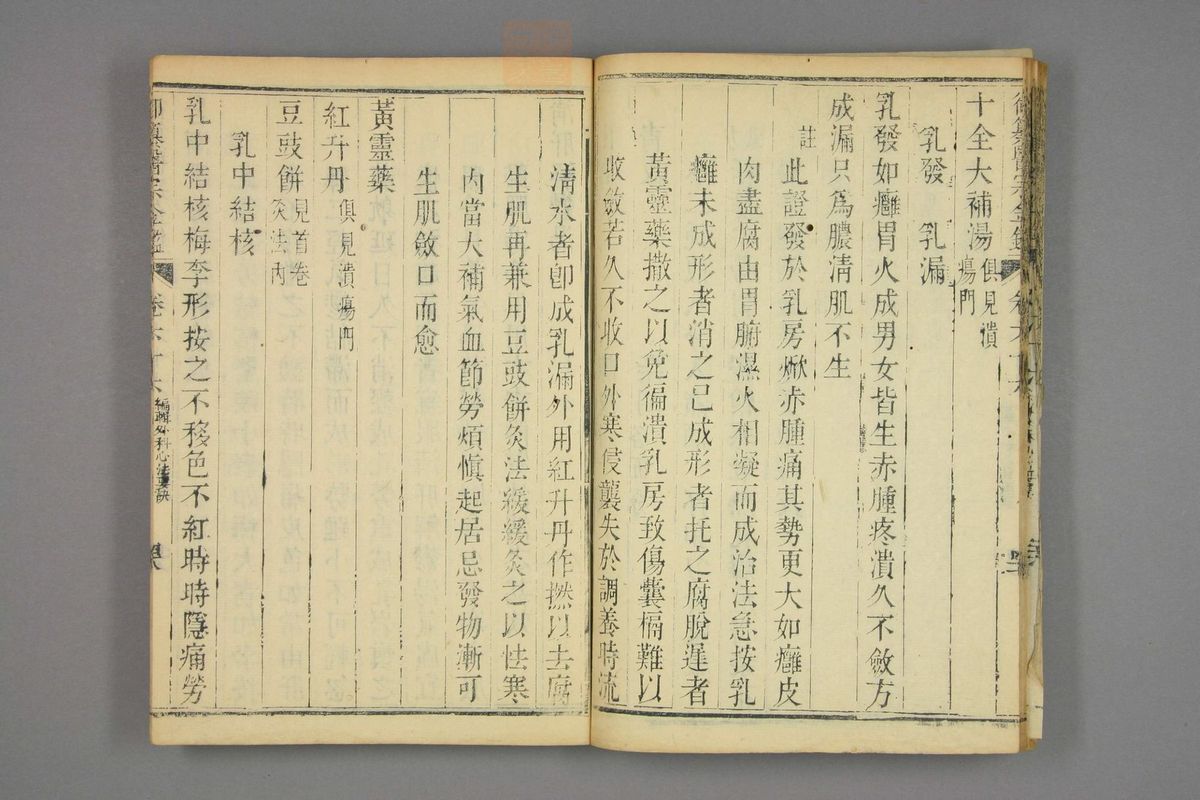 十全大補湯 俱見潰
瘍門
乳發 乳漏
乳發如癰胃火成男女皆生赤腫疼潰久不斂方
成漏只爲膿清肌不生
註 此證發於乳房焮赤腫痛其勢更大如癰皮
肉盡腐由胃腑濕火相凝而成治法急按乳
癰未成形者消之已成形者托之腐脫遲者
黃靈藥撒之以免徧潰乳房致傷囊槅難以
收斂若久不收口外寒侵襲失於調養時流
清水者卽成乳漏外用紅升丹作撚以去腐
生肌再兼用豆豉餅灸法緩緩灸之以怯寒
內當大補氣血節勞煩愼起居忌發物漸可
生肌斂口而愈
黃靈藥
紅升丹 俱見潰瘍門
豆豉餅 見首卷
灸法內
乳中結核
乳中結核梅李形按之不移色不紅時時隱痛勞
御纂醫宗金鑑 卷六十六 編輯外科心法要訣